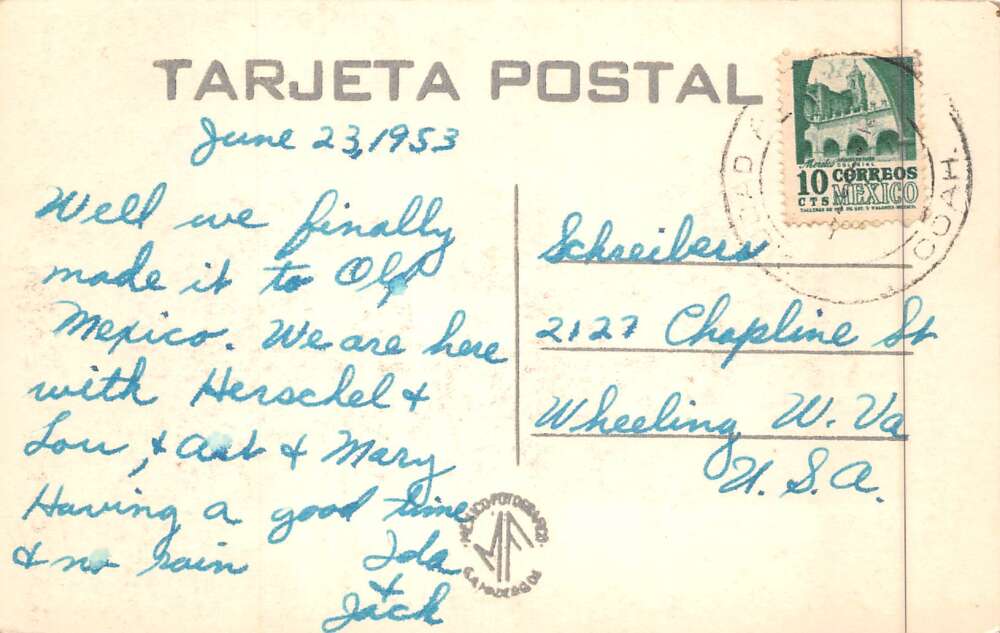 TARJETA POSTAL
June 23, 1953
Well we finally
made it to Old
Mexico. We are here
with Herschel &
Lou, & Art & Mary
Having a good time
& no rain Ida
&
Jack
Schreibers
2127 Chapline St
Wheeling W. Va
U. S. A.
10 CORREOS
CTS MEXICO
COAH.
MEXICO FOTOGRAFICO
MF